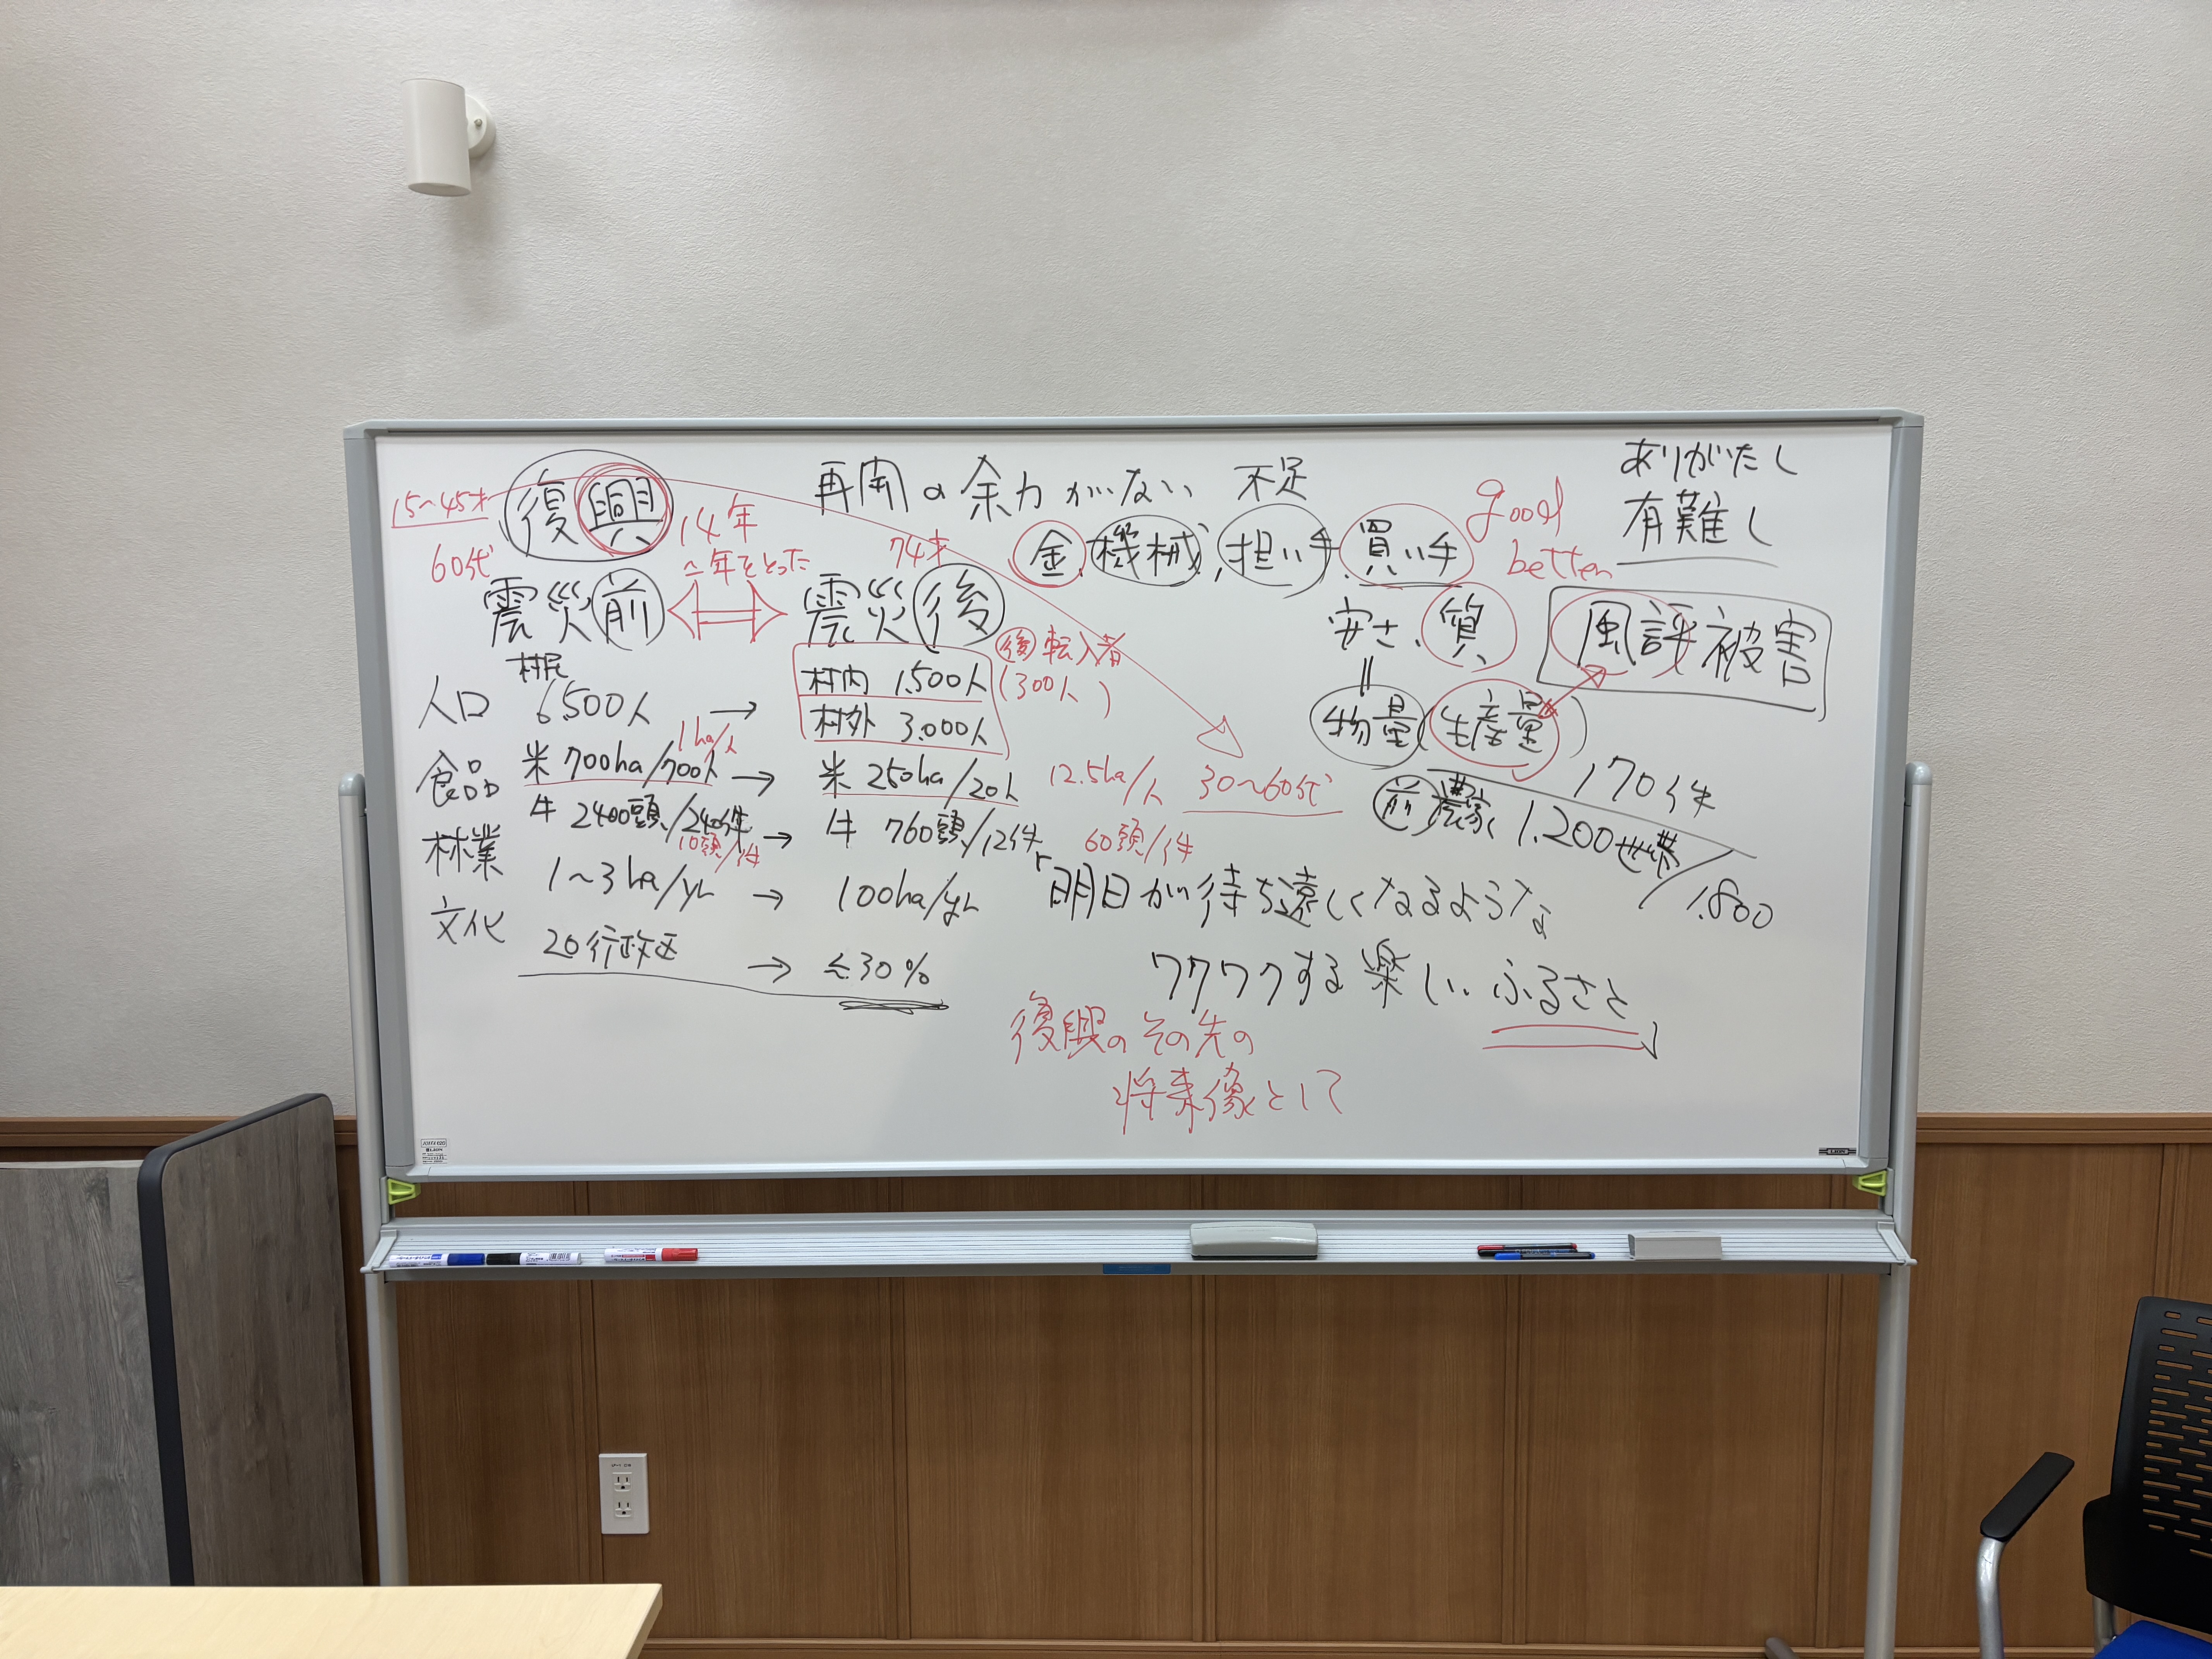 15~45才
60代
復興
14年
~年をとった
震災前
震災後
74才
再開の余力がない 不足
金、機械、担い手、買い手
good
better
ありがたし
有難し
安さ、質
風評被害
物量(生産量)
170件
前 農家 1.200世帯/1.800
村民
人口 6.500人 → 村内 1.500人
村外 3.000人
後 転入者
(300人)
1ha/人
食品 米 700ha/700人 → 米 250ha/20人 12.5ha/人 30~60代
牛 2400頭/240件 → 牛 760頭/12件 60頭/件
10頭/件
林業 1~3ha/yr → 100ha/yr
文化 20行政区 → ≤30%
「明日が待ち遠しくなるような
ワクワクする楽しい ふるさと」
復興のその先の
将来像として